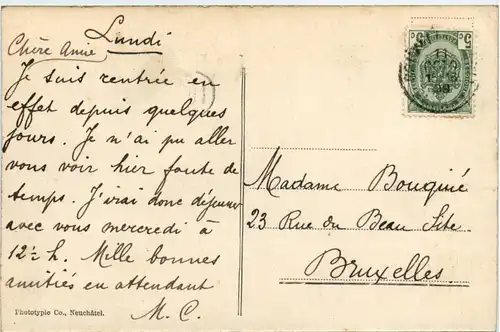 Lundi
Chère Amie
Je suis rentrée en
effet depuis quelques
jours. Je n'ai pu aller
vous voir hier faute de
temps. J'irai donc déjeuner
avec vous mercredi à
12½ h. Mille bonnes
amitiés en attendant
M. C.
Phototypie Co., Neuchâtel.
Madame Bouquié
23 Rue du Beau Site
Bruxelles